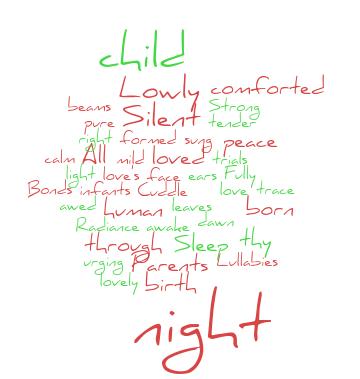 child
Lowly comforted
beams Silent Strong
pure tender
right formed sung peace
calm All mild loved trials
light love's face ears Fully
Bonds infants Cuddle love trace
awed human leaves born
Radiance awake dawn
through Sleep thy
urging Parents Lullabies
lovely birth
night